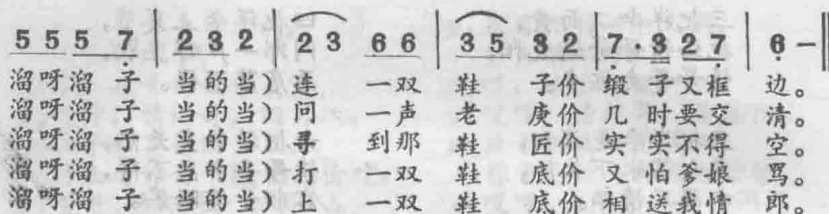 5 5 5 7̣ | 2 3 2 | 2 3 6 6 | 3 5 3 2 | 7̣·3 2 7̣ | 6̣ – ‖
溜呀溜 子 当的当)连 一双 鞋 子价 缎 子又框 边。
溜呀溜 子 当的当)问 一声 老 庚价 几 时要交 清。
溜呀溜 子 当的当)寻 到那 鞋 匠价 实 实不得 空。
溜呀溜 子 当的当)打 一双 鞋 底价 又 怕爹娘 骂。
溜呀溜 子 当的当)上 一双 鞋 底价 相 送我情 郎。